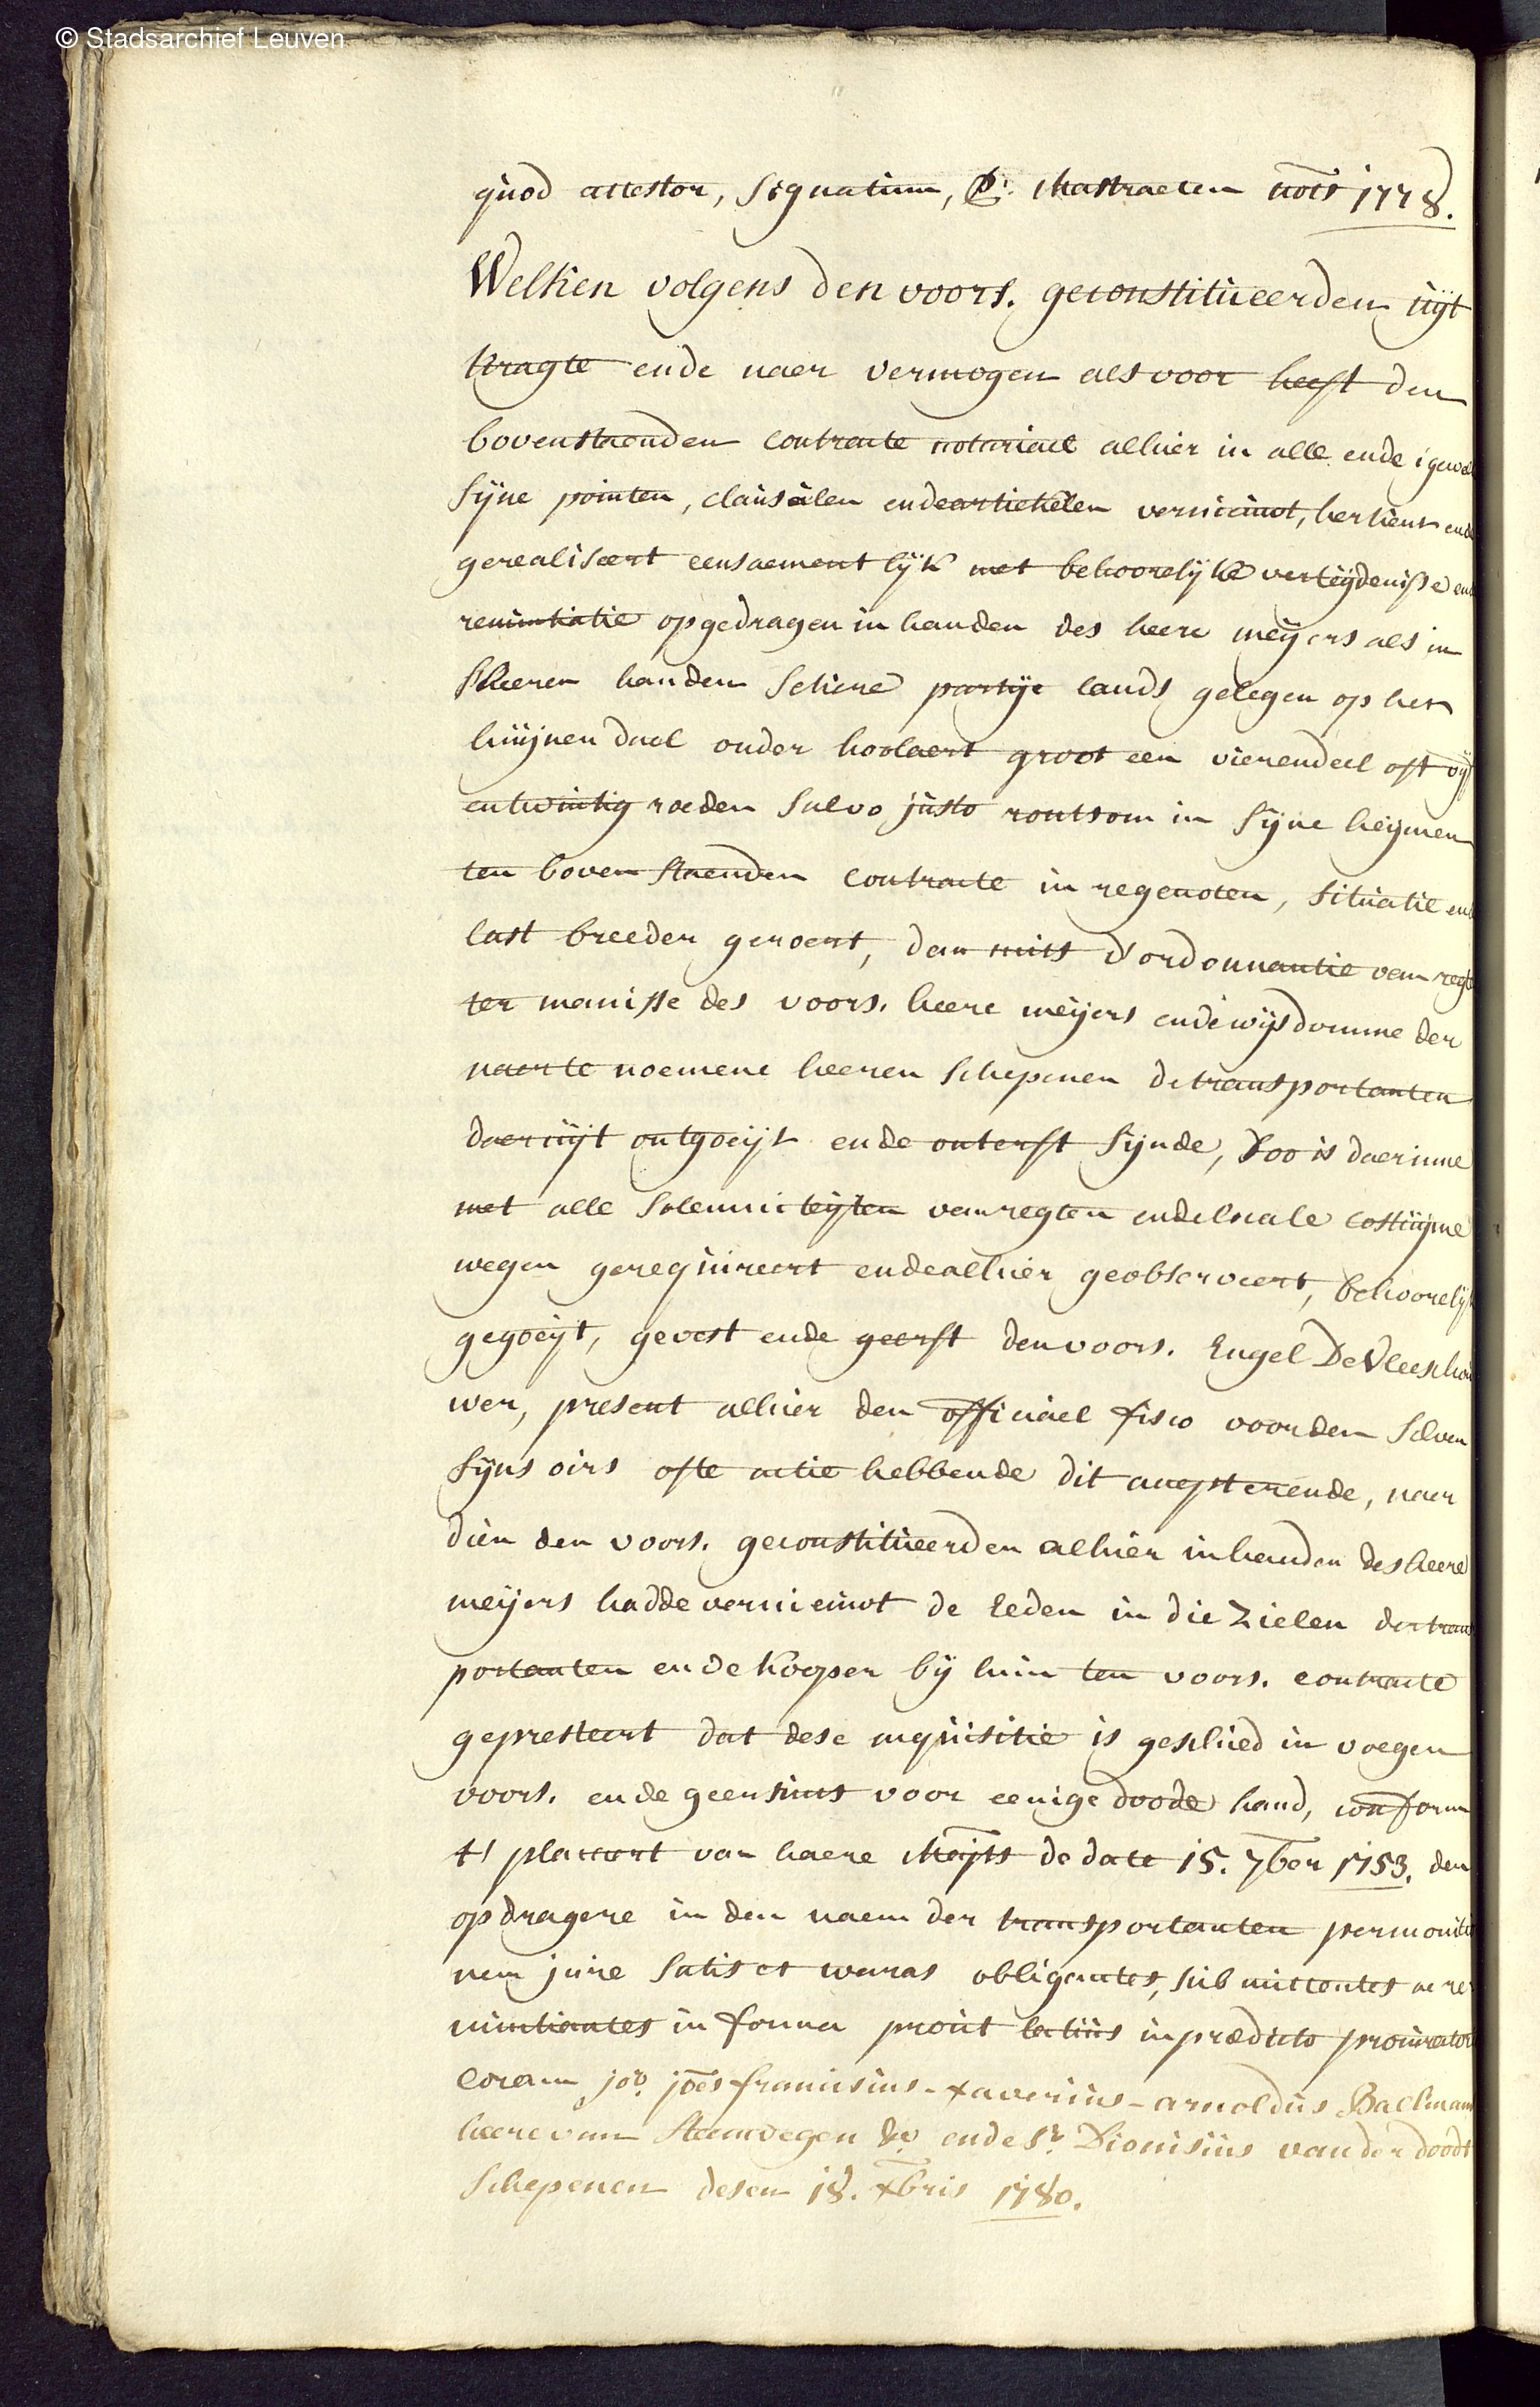 © Stadsarchief Leuven
quod attestor, signatum, P: Mastraeten nots 1778.
Welken volgens den voors. geconstitueerden uijt
kragte ende naer vermogen als voor heeft den
bovenstaenden contracte notariael alhier in alle ende igewel
sijne pointen, clausulen ende artickelen vernieuwt, herkent ende
gerealiseert eensaementlijk met behoorelijke vertijdenisse ende
renuntiatie opgedragen in handen des heere meijers als in
sheeren handen sekere partije lands gelegen op het
huijnendael onder holaert groot een vierendeel oft vijf
entwintig roeden salvo justo rontsom in sijne heijmen
ten bovenstaenden contracte in regenoten, situatie ende
last breeder geroert, dan mits d'ordonnantie van regh
ter manisse des voors. heere meijers ende wijsdomme der
naer te noemene heeren schepenen de transportanten
daeruijt ontgoeijt ende onterft sijnde, Soo is daerinne
met alle solemniteijten van regten ende locale costuijme
wegen gerequireert ende alhier geobserveert, behoorelijk
gegoeijt, gevest ende geerft den voors. Engel De Vleeschou
wer, present alhier den officiael fisco voor den selven
sijns oirs ofte actie hebbende dit accepterende, naer
dien den voors. geconstitueerden alhier in handen des heere
meijers hadde vernieuwt de Eeden in die Zielen der trans
portanten ende kooper bij hun ten voors. contracte
gepresteert dat dese acquisitie is geschied in voegen
voors. ende geensints voor eenige doode hand, conform
t' placcart van haere Majts de date 15. 7ber 1753. den
opdragere in den naem der transportanten per monitio
nem jure satis et waras obligantes, submittentes ac re
nuntiantes in forma prout latius in praedicto procurator
Coram jor. joes franciscus-xaverius-arnoldus Baelmans
heere van Steenwegen &c ende Sr. Dionisius vander doodt
Schepenen desen 18. xbris 1780.